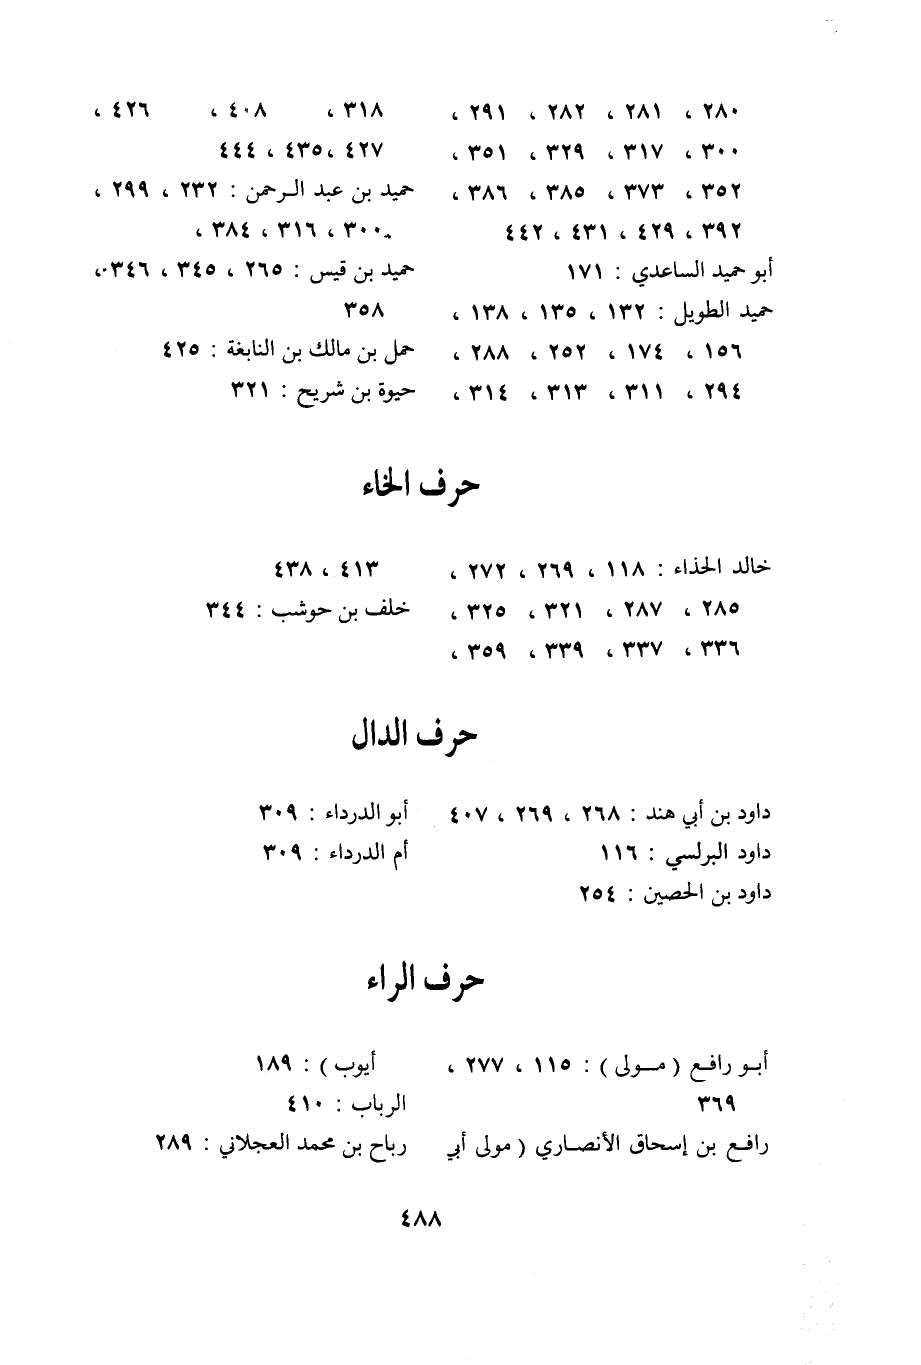 ٢٨٠ ، ٢٨١ ، ٢٨٢ ، ٢٩١ ،
٣٠٠ ، ٣١٧ ، ٣٢٩ ، ٣٥١ ،
٣٥٢ ، ٣٧٣ ، ٣٨٥ ، ٣٨٦ ،
٣٩٢ ، ٤٢٩ ، ٤٣١ ، ٤٤٢
أبو حميد الساعدي : ١٧١
حميد الطويل : ١٣٢ ، ١٣٥ ، ١٣٨ ،
١٥٦ ، ١٧٤ ، ٢٥٢ ، ٢٨٨ ،
٢٩٤ ، ٣١١ ، ٣١٣ ، ٣١٤ ،
٣١٨ ، ٤٠٨ ، ٤٢٦ ،
٤٢٧ ،٤٣٥ ، ٤٤٤
حميد بن عبد الرحمن : ٢٣٢ ، ٢٩٩ ،
٣٠٠ ، ٣١٦ ، ٣٨٤ ،
حميد بن قيس : ٢٦٥ ، ٣٤٥ ، ٣٤٦ ،
٣٥٨
حمل بن مالك بن النابغة : ٤٢٥
حيوة بن شريح : ٣٢١
حرف الخاء
خالد الحذاء : ١١٨ ، ٢٦٩ ، ٢٧٢ ،
٢٨٥ ، ٢٨٧ ، ٣٢١ ، ٣٢٥ ،
٣٣٦ ، ٣٣٧ ، ٣٣٩ ، ٣٥٩ ،
٤١٣ ، ٤٣٨
خلف بن حوشب : ٣٤٤
حرف الدال
داود بن أبي هند : ٢٦٨ ، ٢٦٩ ، ٤٠٧
داود البرلسي : ١١٦
داود بن الحصين : ٢٥٤
أبو الدرداء : ٣٠٩
أم الدرداء : ٣٠٩
حرف الراء
أبو رافع ( مولى ) : ١١٥ ، ٢٧٧ ،
٣٦٩
رافع بن إسحاق الأنصاري ( مولى أبي
أيوب ) : ١٨٩
الرباب : ٤١٠
رباح بن محمد العجلاني : ٢٨٩
٤٨٨